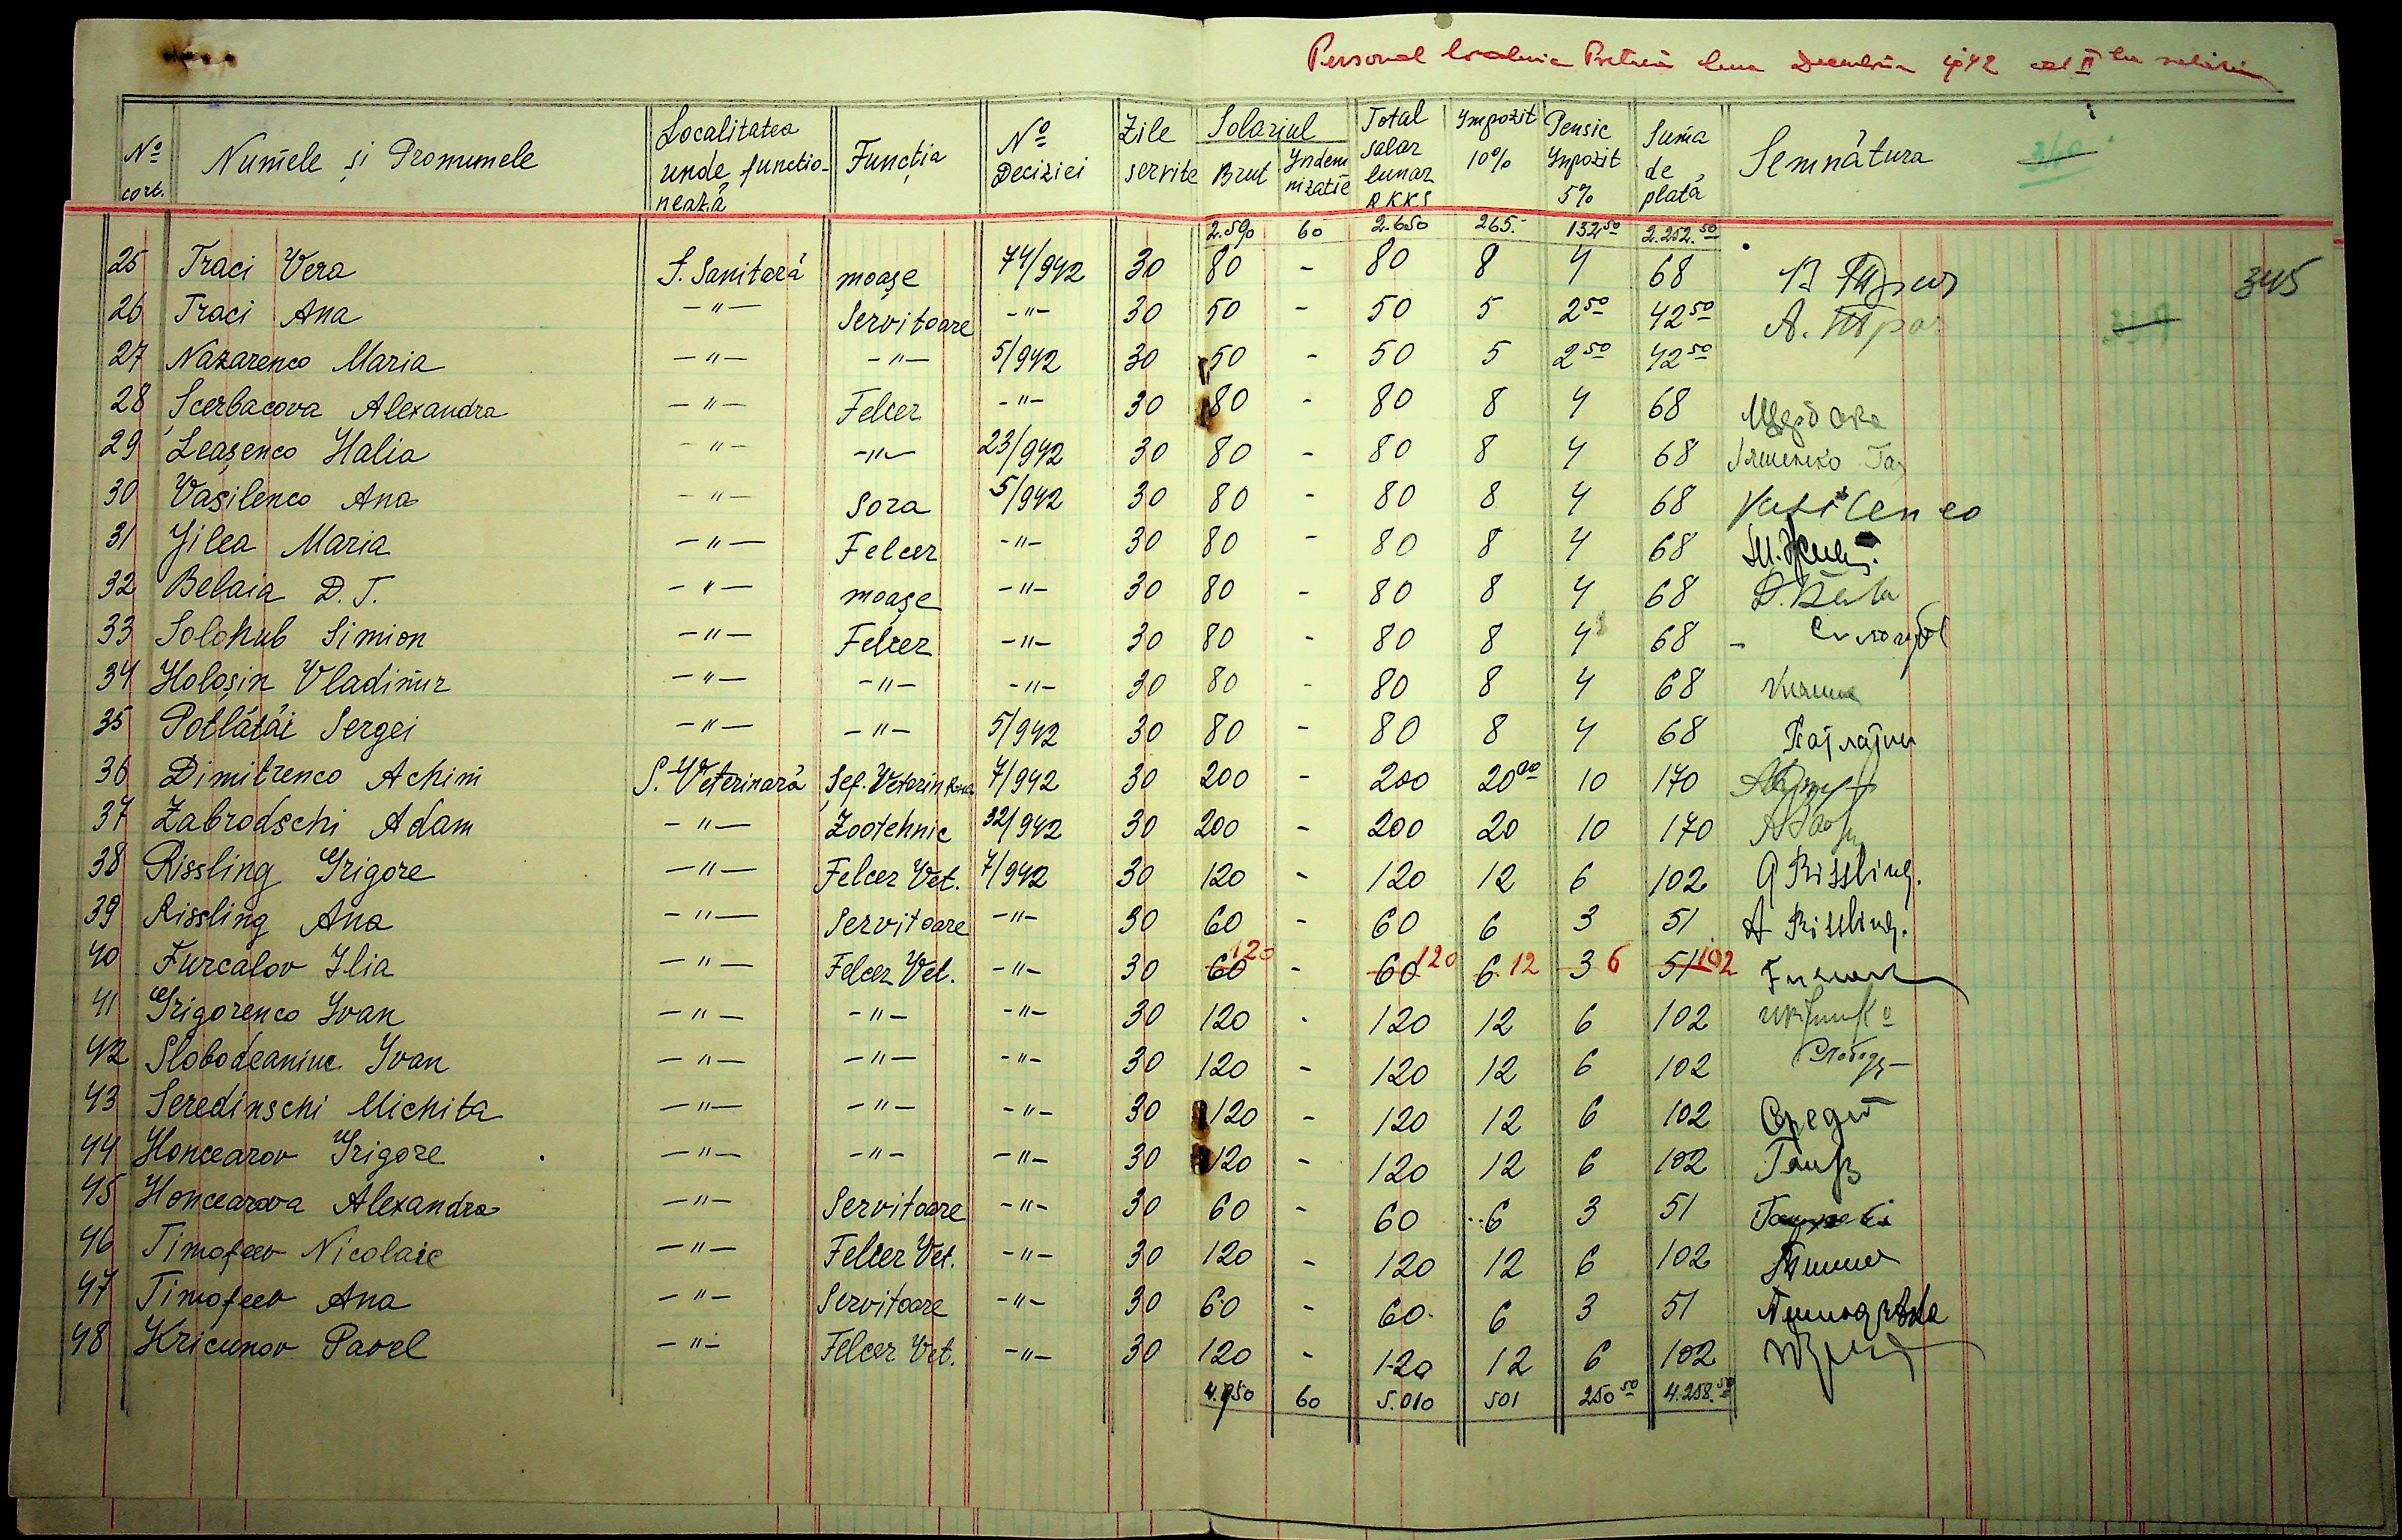 Personal Pretură luna Decembrie 1942
№ cort. Numele și Pronumele Localitatea unde functionează Funcția № Deciziei Zile servite Salariul Brut Yndemnizatie Total salar lunar RKKS Ympozit 10% Pensie Ympozit 5% Suma de plată Semnătura 340
2.590 60 2.650 265.- 132.50 2.252.50
25 Traci Vera S. Sanitară moașe 74/942 30 80 - 80 8 4 68 345
26 Traci Ana -"- Servitoare -"- 30 50 - 50 5 2 50 42 50 А. Трач
27 Nazarenco Maria -"- -"- 5/942 30 50 - 50 5 2 50 42 50
28 Șcerbacova Alexandra -"- Felcer -"- 30 80 - 80 8 4 68
29 Leașenco Halia -"- -"- 23/942 30 80 - 80 8 4 68 Ляшенко Га
30 Vasilenco Ana -"- Sora 5/942 30 80 - 80 8 4 68 Vasilenco
31 Jilea Maria -"- Felcer -"- 30 80 - 80 8 4 68
32 Belaia D. T. -"- moașe -"- 30 80 - 80 8 4 68
33 Solohub Simion -"- Felcer -"- 30 80 - 80 8 4 68 -
34 Holoșin Vladimir -"- -"- -"- 30 80 - 80 8 4 68
35 Potlătăi Sergei -"- -"- 5/942 30 80 - 80 8 4 68
36 Dimitrenco Achim S. Veterinară Șef. Veterinară 7/942 30 200 - 200 20 00 10 170
37 Zabrodschi Adam -"- Zootehnic 32/942 30 200 - 200 20 10 170
38 Rissling Grigore -"- Felcer Vet. 7/942 30 120 - 120 12 6 102 G Rissling.
39 Rissling Ana -"- Servitoare -"- 30 60 - 60 6 3 51 A Rissling.
40 Furcalov Ilia -"- Felcer Vet. -"- 30 60 120 - 60 120 6 12 3 6 51 102
41 Grigorenco Ivan -"- -"- -"- 30 120 - 120 12 6 102
42 Slobodeaniuc Ivan -"- -"- -"- 30 120 - 120 12 6 102
43 Seredinschi Michita -"- -"- -"- 30 120 - 120 12 6 102
44 Honcearov Grigore -"- -"- -"- 30 120 - 120 12 6 102
45 Honcearova Alexandra -"- Servitoare -"- 30 60 - 60 6 3 51
46 Timofeev Nicolaie -"- Felcer Vet. -"- 30 120 - 120 12 6 102
47 Timofeev Ana -"- Servitoare -"- 30 60 - 60 6 3 51
48 Kricunov Pavel -"- Felcer Vet. -"- 30 120 - 120 12 6 102
4.950 60 5.010 501 250 50 4.258.50